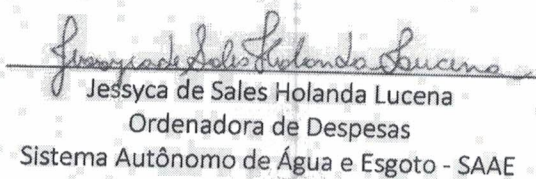 Jessyca de Sales Holanda Lucena
Jessyca de Sales Holanda Lucena
Ordenadora de Despesas
Sistema Autônomo de Água e Esgoto - SAAE